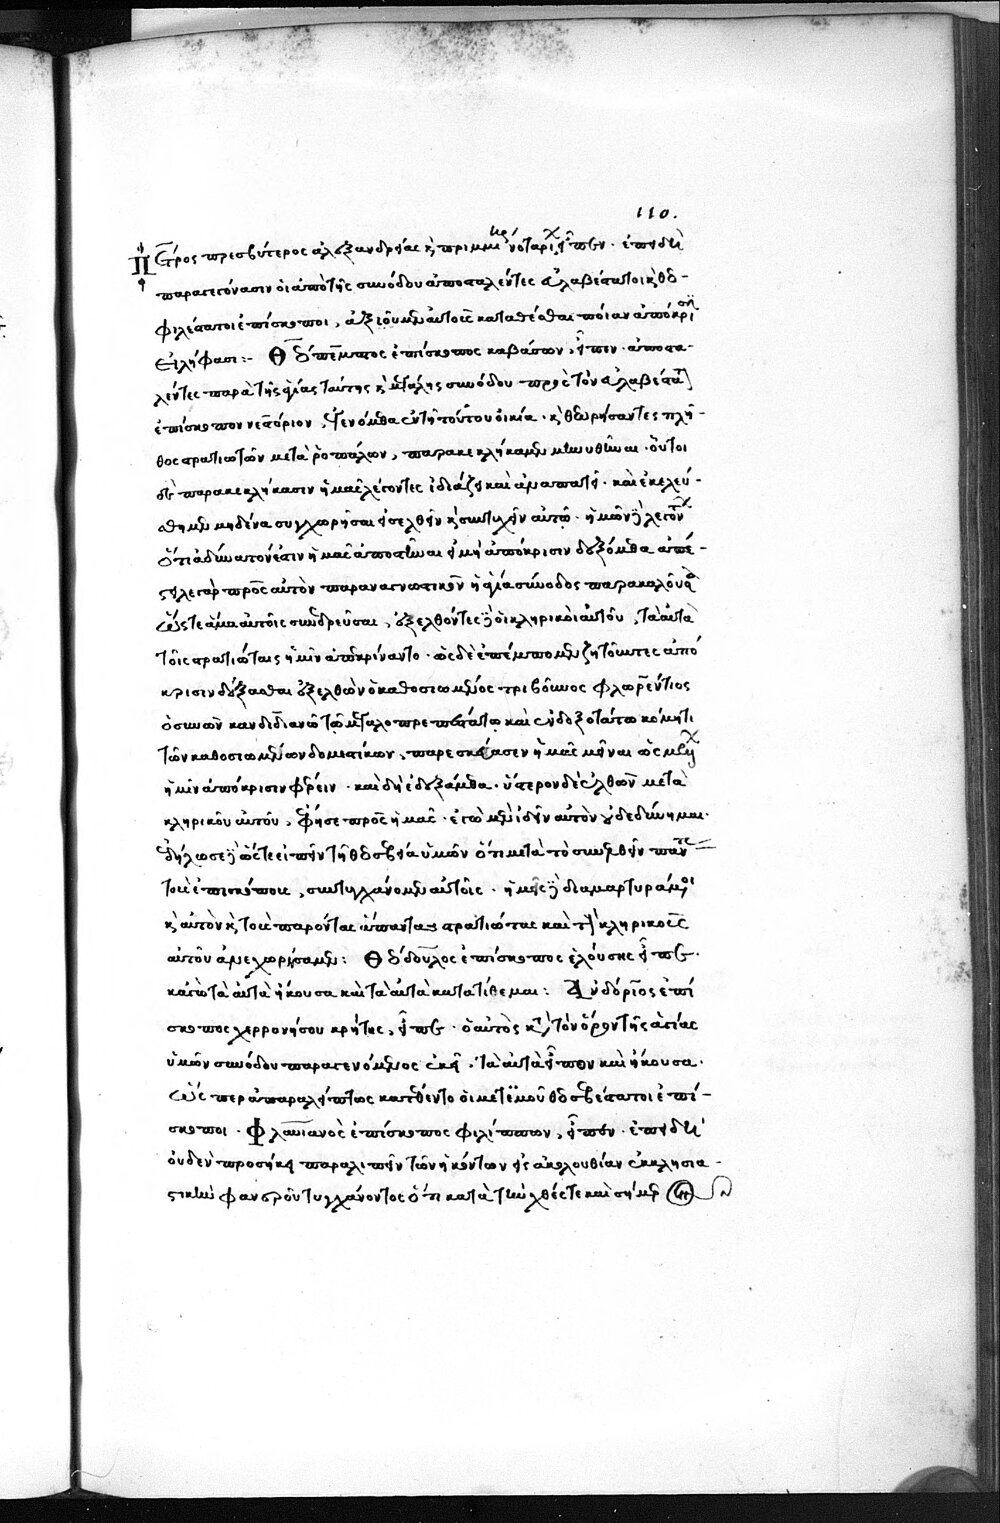 110.
Πέτρος πρεσβύτερος ἀλεξανδρείας κ̀ πριμμικηρ´ νοταρίων εἶπεν · ἐπειδὴ
παραγεγόνασιν οἱ ἀπὸ τῆς συνόδου ἀποσταλέντες εὐλαβέστατοι κ̀ θεο-
φιλέστατοι ἐπίσκοποι, ἀξιοῦμεν αὐτοὺς καταθέσθαι ποίαν ἀπόκρισιν
εἰλήφασι :- Θεόπεμπτος ἐπίσκοπος καβάσων, εἶπεν · ἀποστα-
λέντες παρὰ τῆς ἁγίας ταύτης κ̀ μεγάλης συνόδου πρὸς τὸν εὐλαβέστατον
ἐπίσκοπον νεστόριον, γενόμεθα ἐν τῇ τούτου οἰκία · κ̀ θεωρήσαντες πλῆ-
θος στρατιωτῶν μετὰ ῥοπάλων, παρακεκλήκαμεν μηνυθῆναι · οὗτοι
δὲ παρακεκλήκασιν ἡμᾶς λέγοντες ἰδιάζει καὶ ἀναπαύεται · καὶ ἐκελεύ-
σθημεν μηδένα συγχωρῆσαι εἰσελθεῖν κ̀ συντυχεῖν αὐτῷ · ἡμῶν δὲ λεγόντων
ὅτι ἀδύνατόν ἐστιν ἡμᾶς ἀποστῆναι εἰ μὴ ἀπόκρισιν δεξόμεθα ἀπέ-
στειλε γὰρ πρὸς αὐτὸν παραναγνωστικὸν ἡ ἁγία σύνοδος παρακαλοῦσα
ὥστε ἅμα αὐτοῖς συνεδρεῦσαι, ἐξελθόντες δὲ οἱ κληρικοὶ αὐτοῦ, τὰ αὐτὰ
τοῖς στρατιώταις ἡμῖν ἀπεκρίναντο · ὡς δὲ ἐπέμπομεν ζητοῦντες ἀπό
κρισιν δέξασθαι ἐξελθὼν ὁ καθοσιωμένος τριβοῦνος φλωρέντιος
ὁ συνὼν κανδιδιανῷ τῷ μεγαλοπρεπεστάτῳ καὶ ἐνδοξοτάτῳ κόμητι
τῶν καθοσιωμένων δομεστίκων, παρεσκεύασεν ἡμᾶς μεῖναι ὡς μέλλων
ἡμῖν ἀπόκρισιν φέρειν · καὶ δὴ ἐδεξάμεθα · ὕστερον δὲ ἐλθὼν μετὰ
κληρικοῦ αὐτοῦ, ἔφησε πρὸς ἡμᾶς · ἐγὼ μὲν ἰδεῖν αὐτὸν οὐ δεδύνημαι ·
ἐδήλωσε δὲ ὥστε εἰπεῖν τῇ θεοσεβεία ὑμῶν ὅτι μετὰ τὸ συνελθεῖν πάντας
τοὺς ἐπισκόπους, συντυγχάνομεν αὐτοῖς · ἡμεῖς δὲ διαμαρτυράμενοι
κ̀ αὐτὸν κ̀ τοὺς παρόντας ἅπαντας στρατιώτας καὶ τοὺς κληρικοὺς
αὐτοῦ ἀνεχωρήσαμεν : Θεόδουλος ἐπίσκοπος ἐλούσης εἶπεν ·
κἀγὼ τὰ αὐτὰ ἤκουσα καὶ τὰ αὐτὰ κατατίθεμαι : Ἀνδήριος ἐπί
σκοπος χερρονήσου κρήτης, εἶπεν · ὁ αὐτὸς κατὰ τὸν ὅρον τῆς ἁγίας
ὑμῶν συνόδου παραγενόμενος ἐκεῖ · τὰ αὐτὰ εἶπον καὶ ἤκουσα ·
ὥσπερ ἀπαραλείπτως κατέθεντο οἱ μετ' ἐμοῦ θεοσεβέστατοι ἐπί-
σκοποι · Φλαυιανὸς ἐπίσκοπος φιλίππων, εἶπεν · ἐπειδὴ
οὐδὲν προσήκει παραλιπεῖν τῶν ἡκόντων εἰς ἀκολουθίαν ἐκκλησια-
στικὴν φανεροῦ τυγχάνοντος ὅτι κατὰ τὴν χθές τε καὶ σήμερον